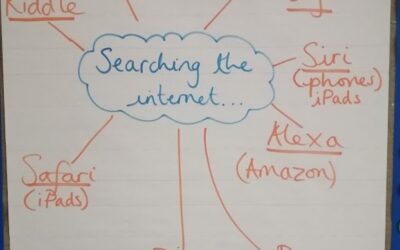 Kiddle
Searching the
internet...
Siri
(iphones)
iPads
Alexa
(Amazon)
Safari
(iPads)